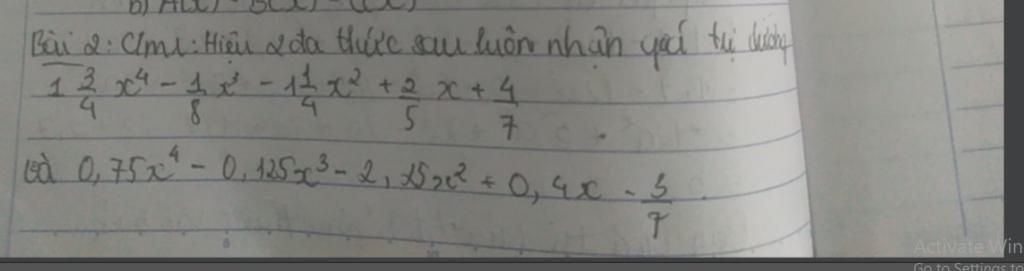 b) A(x) - B(x) - C(x)
Bài 2: C/m: Hiệu 2 đa thức sau luôn nhận giá trị dương
1 3/4 x⁴ - 1/8 x³ - 1 1/4 x² + 2/5 x + 4/7
và 0,75x⁴ - 0,125x³ - 2,25x² + 0,4x - 3/7
Activate Win
Go to Settings to